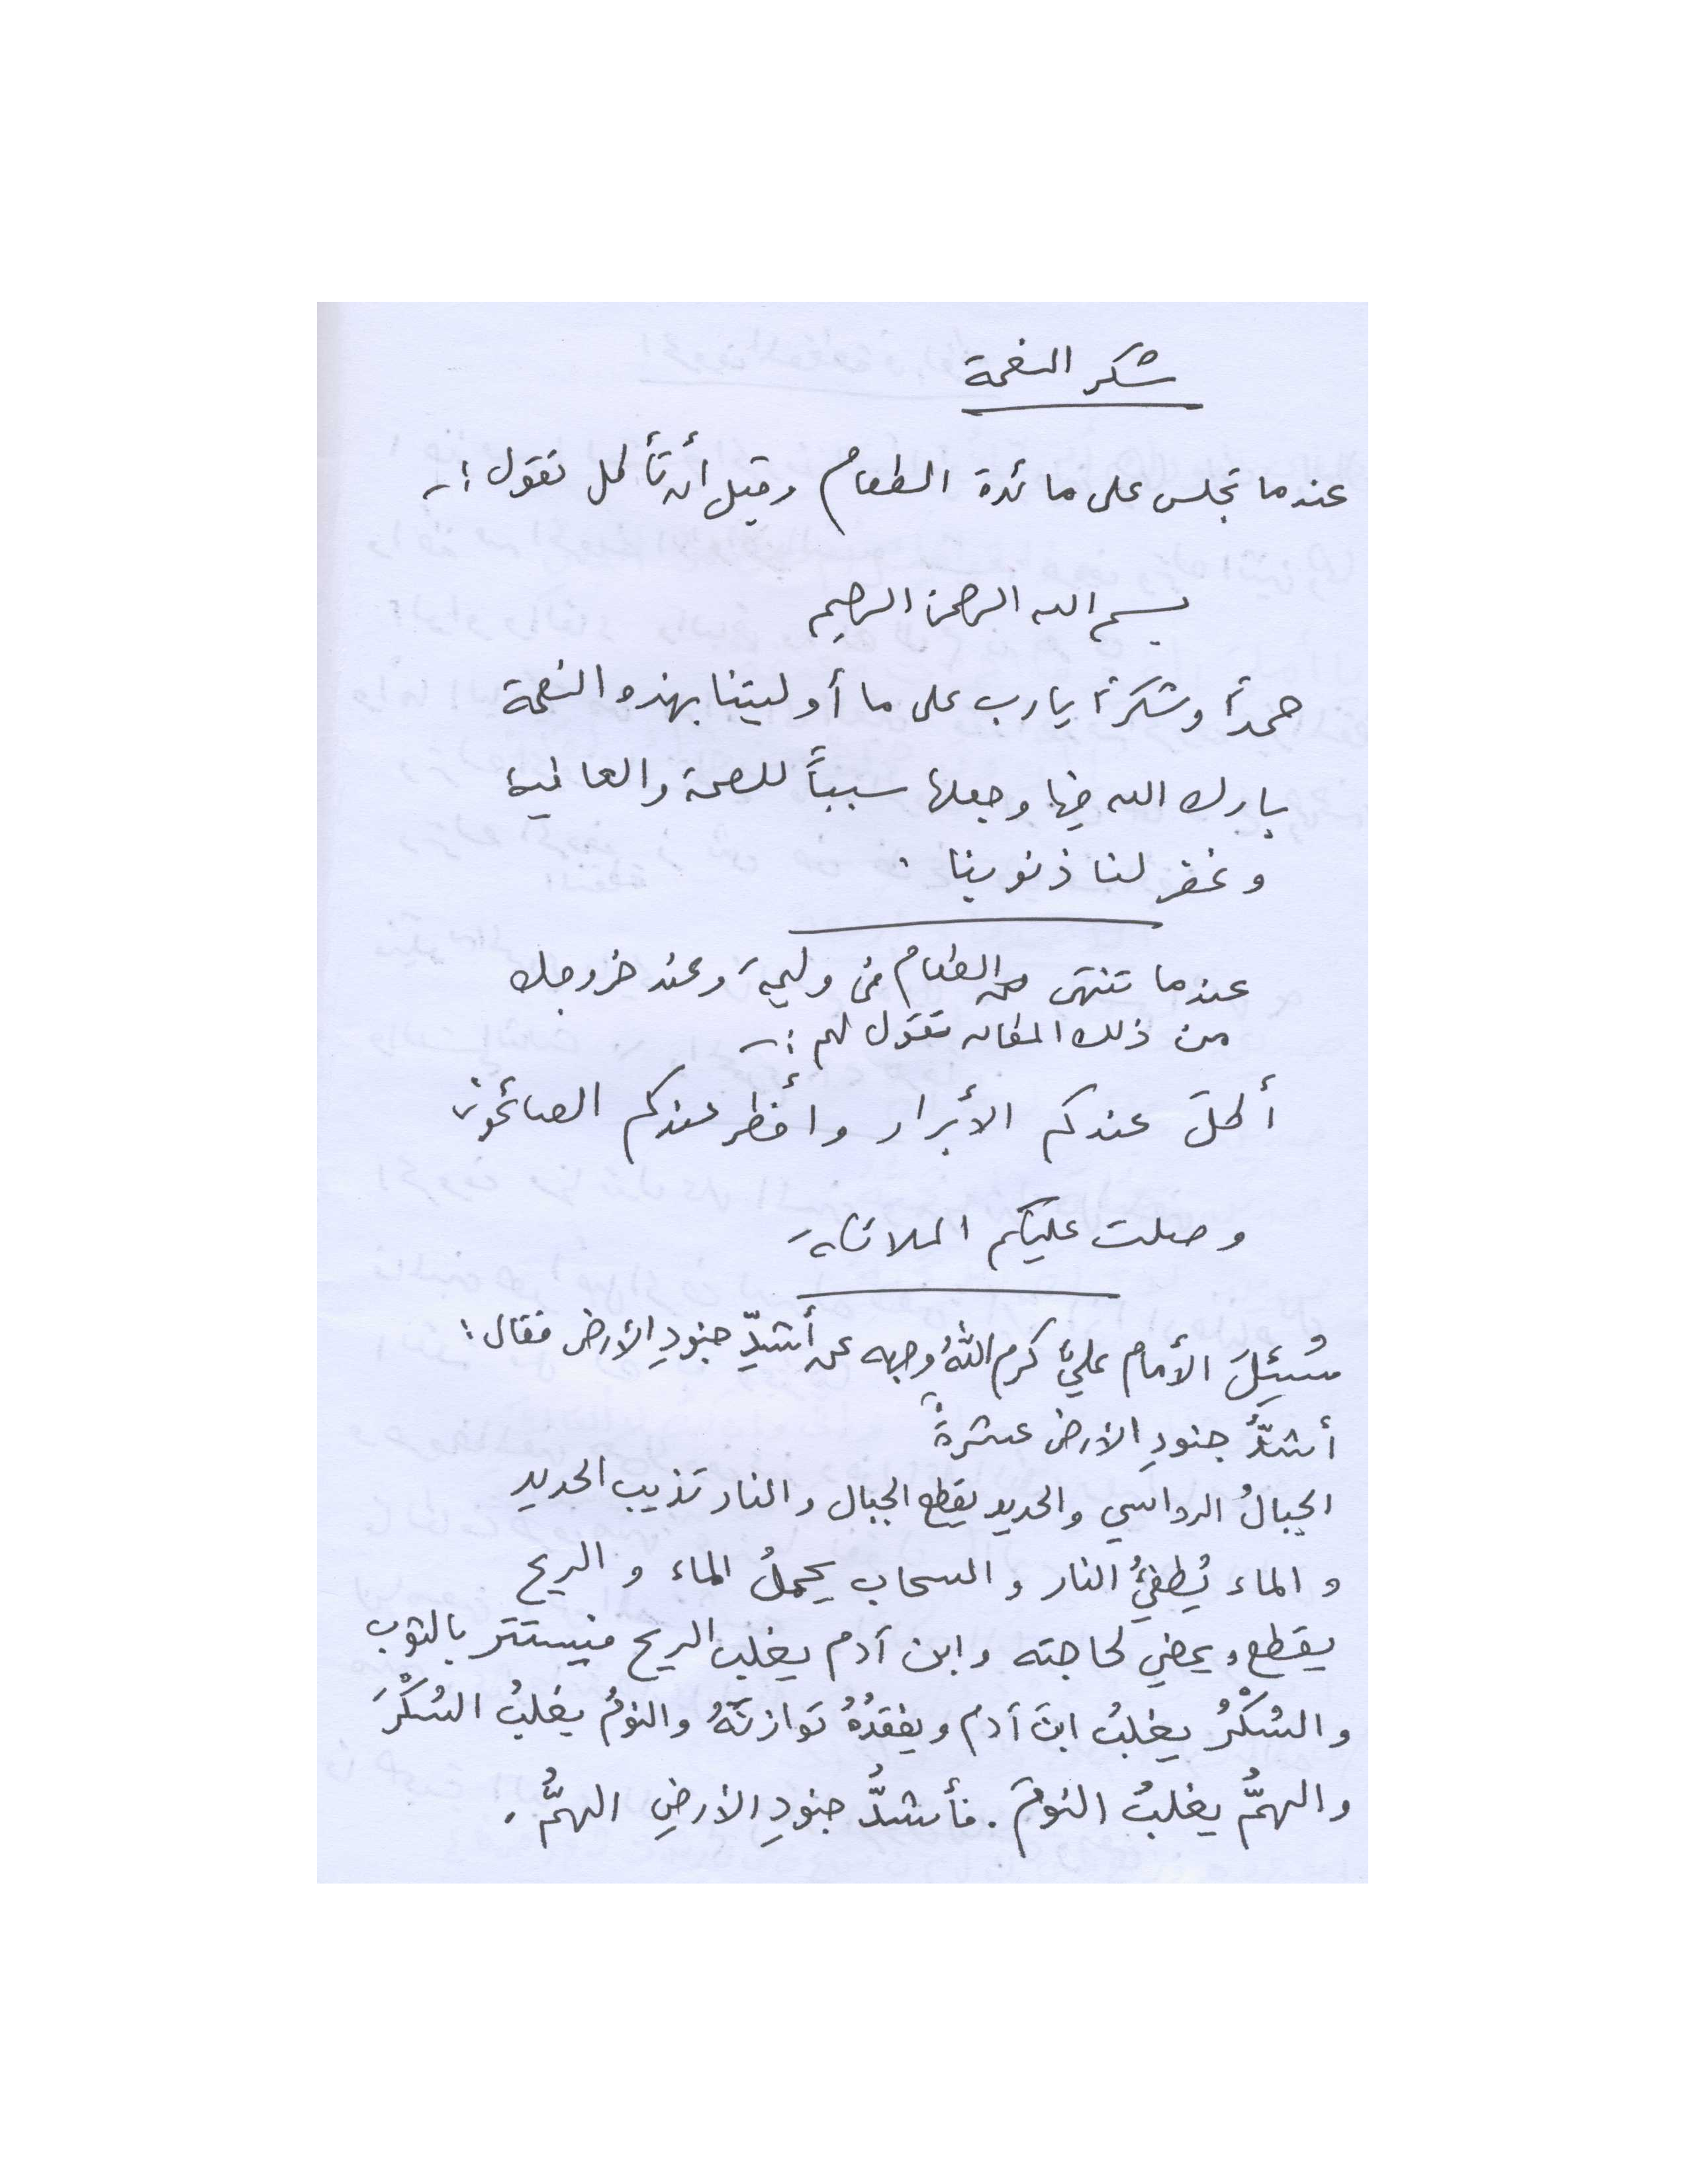 شكر النعمة
عندما تجلس على مائدة الطعام وقبل أن تأكل تقول :-
بسم الله الرحمن الرحيم
حمداً وشكراً يا رب على ما أوليتنا بهذه النعمة
بارك الله فيها وجعلها سبباً للصحة والعافية
وغفر لنا ذنوبنا .
عندما تنتهى من الطعام في وليمة وعند خروجك
من ذلك المكان تقول لهم :-
أكلَ عندكم الأبرار وأفطر عندكم الصائمون
وصلت عليكم الملائكة
سُئِلَ الأمام عليٌ كرم اللهُ وجهه عن أشدِّ جنودِ الأرض فقال :
أشدُّ جنودِ الأرض عشرةٌ
الجبالُ الرواسي والحديد يقطع الجبال والنار تذيب الحديد
والماء يُطفيُ النار والسحاب يحملُ الماء والريح
يقطع ويمضي لحاجته وابن آدم يغلب الريح فيستتر بالثوب
والسُكْرُ يغلبُ ابنَ آدم ويفقدُهُ توازنَهُ والنومُ يغلبُ السُكْرَ
والهمُّ يغلبُ النومَ . فأشدُّ جنودِ الأرضِ الهمُّ .